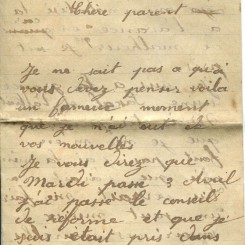 Chère parent
Je ne sait pas a quoi
vous devez penser voila
un fameux moment
que je n'ai eut de
vos nouvelles
Je vous direz que
Mardi passé 3 Avril
j'ai passé le conseil
de reforme et que je
suis était pris dans